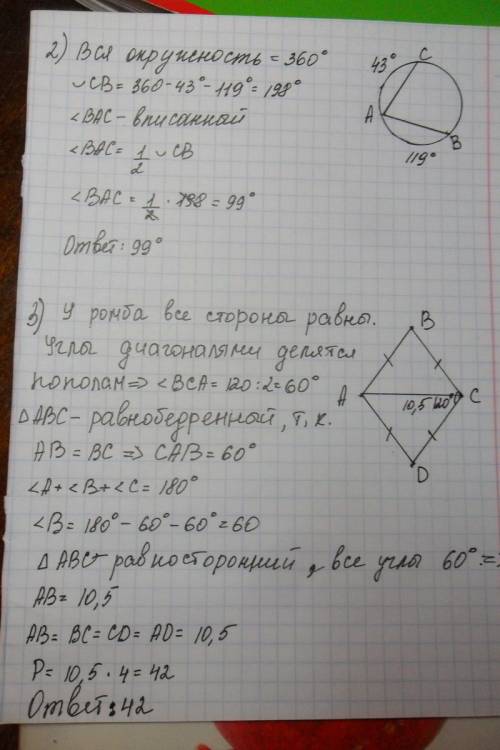 2) Вся окружность = 360°
◡CB = 360 - 43° - 119° = 198°
∠BAC - вписанный
∠BAC = 1/2 ◡CB
∠BAC = 1/2 · 198 = 99°
Ответ: 99°
43°
C
A
B
119°
3) У ромба все стороны равны.
Углы диагоналями делятся
пополам => ∠BCA = 120 : 2 = 60°
△ABC - равнобедренный, т, к.
AB = BC => CAB = 60°
∠A + ∠B + ∠C = 180°
∠B = 180° - 60° - 60° = 60
△ABC - равносторонний, все углы 60° =>
AB = 10,5
AB = BC = CD = AD = 10,5
P = 10,5 · 4 = 42
Ответ: 42
B
A
10,5 120°
C
D